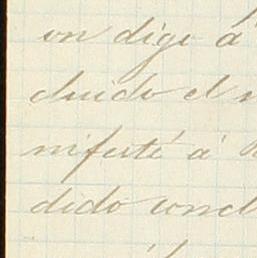 on digo á
cluido el
nifesté á
dido concl